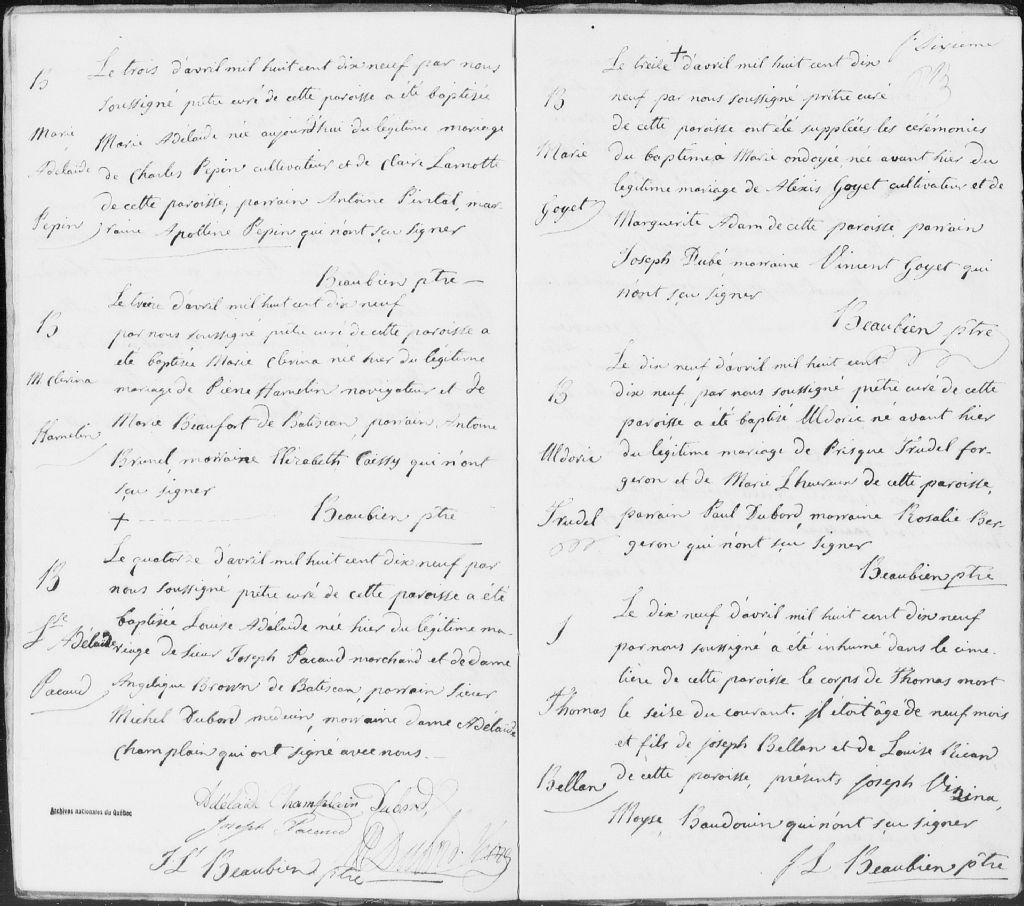 B
Marie
Adélaïde
Pepin
Le trois d'avril mil huit cent dix neuf par nous
soussigné prêtre curé de cette paroisse a été baptisée
Marie Adélaïde née aujourd'hui du légitime mariage
de Charles Pepin cultivateur et de Claire Lamotte
de cette paroisse; parrain Antoine Pintal, mar-
raine Apolline Pepin qui n'ont sçu signer
Beaubien ptre
B
M Clerina
Hamelin
Le treize d'avril mil huit cent dix neuf
par nous soussigné prêtre curé de cette paroisse a
été baptisée Marie Clerina née hier du légitime
mariage de Pierre Hamelin navigateur et de
Marie Beaufort de Batiscan, parrain Antoine
Brunel marraine Elizabeth qui n'ont
sçu signer
Beaubien ptre
+
B
Lse Adélaïde
Pacaud
Le quatorze d'avril mil huit cent dix neuf par
nous soussigné prêtre curé de cette paroisse a été
baptisée Louise Adélaïde née hier du légitime ma-
riage de Sieur Joseph Pacaud marchand et de dame
Angelique Brown de Batiscan, parrain Sieur
Michel Dubord medecin, marraine dame Adélaïde
Champlain qui ont signé avec nous
Adélaïde Champlain Dubord
Joseph Pacaud
Dubord
J L Beaubien ptre
Archives nationales du Québec
Sixieme
B
B
Marie
Goyet
Le treize + d'avril mil huit cent dix
neuf par nous soussigné prêtre curé
de cette paroisse ont été suppléées les cérémonies
du baptême à Marie ondoyée née avant hier du
legitime mariage de Alexis Goyet cultivateur et de
Marguerite Adam de cette paroisse, parrain
Joseph Dubé marraine Vincent Goyet qui
n'ont sçu signer
Beaubien ptre
B
Uldorie
Trudel
Le dix neuf d'avril mil huit cent
dix neuf, par nous soussigné prêtre curé de cette
paroisse a été baptisé Uldorie né avant hier
du légitime mariage de Prisque Trudel for-
geron et de Marie Lheureux de cette paroisse,
parrain Paul Dubord, marraine Rosalie Ber-
geron qui n'ont sçu signer
Beaubien ptre
S
Thomas
Bellan
Le dix neuf d'avril mil huit cent dix neuf
par nous soussigné a été inhumé dans le cime-
tière de cette paroisse le corps de Thomas mort
le seize du courant. Il étoit âgé de neuf mois
et fils de joseph Bellan et de Louise Ricard
de cette paroisse, présents joseph
Moyse Baudouin qui n'ont sçu signer
J L Beaubien ptre